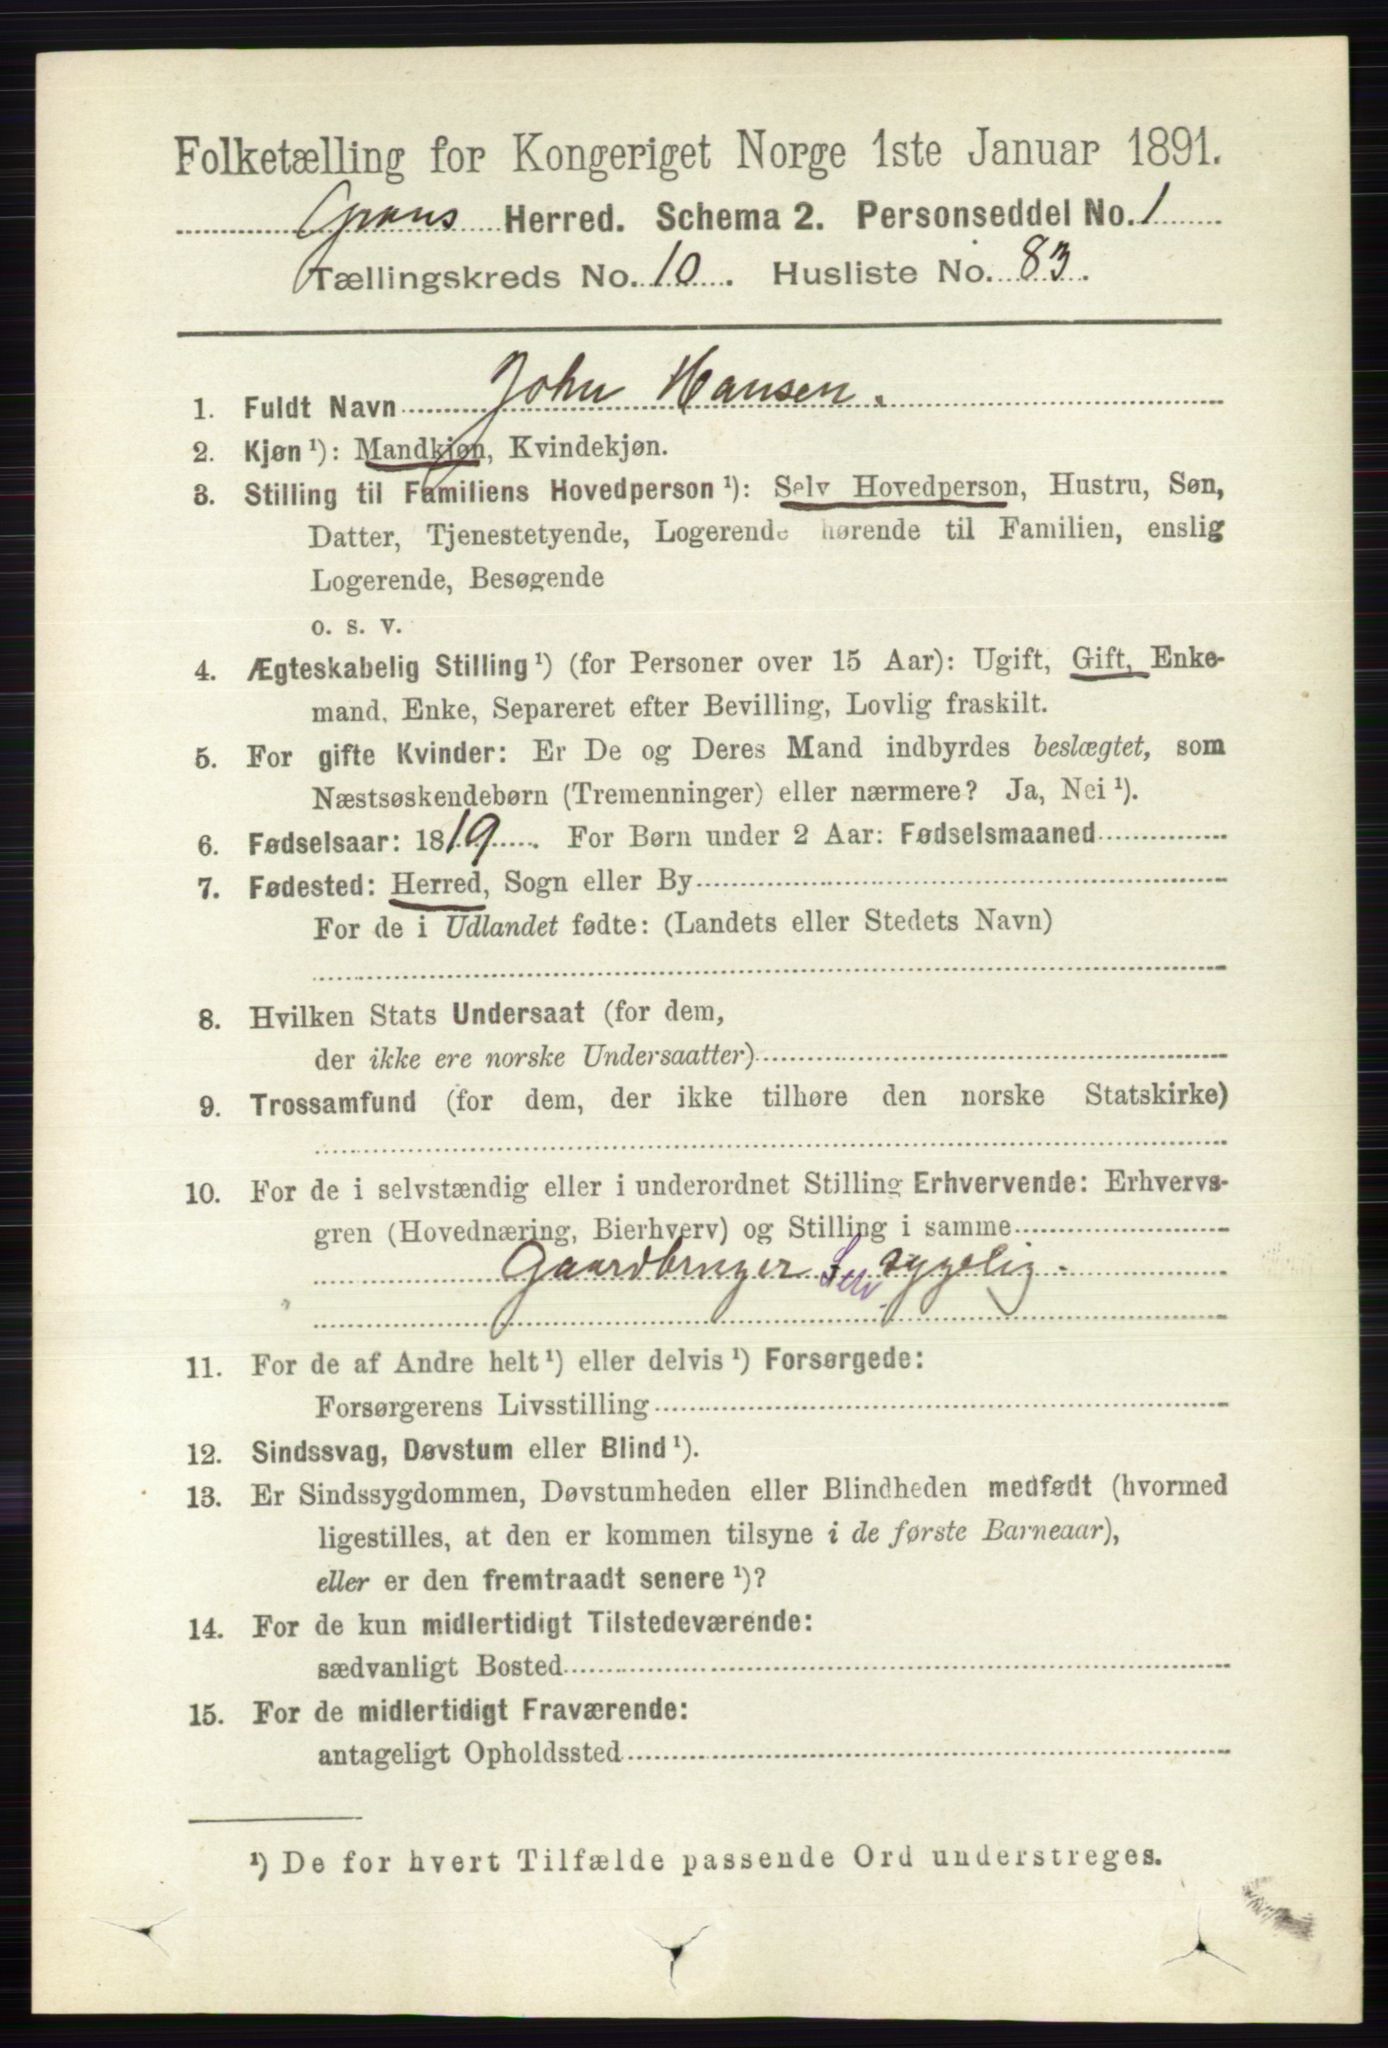 Folketælling for Kongeriget Norge 1ste Januar 1891.
Grans Herred. Schema 2. Personseddel No. 1
Tællingskreds No. 10. Husliste No. 83.
1. Fuldt Navn John Hansen.
2. Kjøn ¹): Mandkjøn, Kvindekjøn.
3. Stilling til Familiens Hovedperson ¹): Selv Hovedperson, Hustru, Søn,
Datter, Tjenestetyende, Logerende hørende til Familien, enslig
Logerende, Besøgende
o. s. v.
4. Ægteskabelig Stilling ¹) (for Personer over 15 Aar): Ugift, Gift, Enke-
mand, Enke, Separeret efter Bevilling, Lovlig fraskilt.
5. For gifte Kvinder: Er De og Deres Mand indbyrdes beslægtet, som
Næstsøskendebørn (Tremenninger) eller nærmere? Ja, Nei ¹).
6. Fødselsaar: 1819. For Børn under 2 Aar: Fødselsmaaned
7. Fødested: Herred, Sogn eller By
For de i Udlandet fødte: (Landets eller Stedets Navn)
8. Hvilken Stats Undersaat (for dem,
der ikke ere norske Undersaatter)
9. Trossamfund (for dem, der ikke tilhøre den norske Statskirke)
10. For de i selvstændig eller i underordnet Stilling Erhvervende: Erhvervs-
gren (Hovednæring, Bierhverv) og Stilling i samme
Gaardbruger sygelig.
11. For de af Andre helt ¹) eller delvis ¹) Forsørgede:
Forsørgerens Livsstilling
12. Sindssvag, Døvstum eller Blind ¹).
13. Er Sindssygdommen, Døvstumheden eller Blindheden medfødt (hvormed
ligestilles, at den er kommen tilsyne i de første Barneaar),
eller er den fremtraadt senere ¹)?
14. For de kun midlertidigt Tilstedeværende:
sædvanligt Bosted
15. For de midlertidigt Fraværende:
antageligt Opholdssted
¹) De for hvert Tilfælde passende Ord understreges.